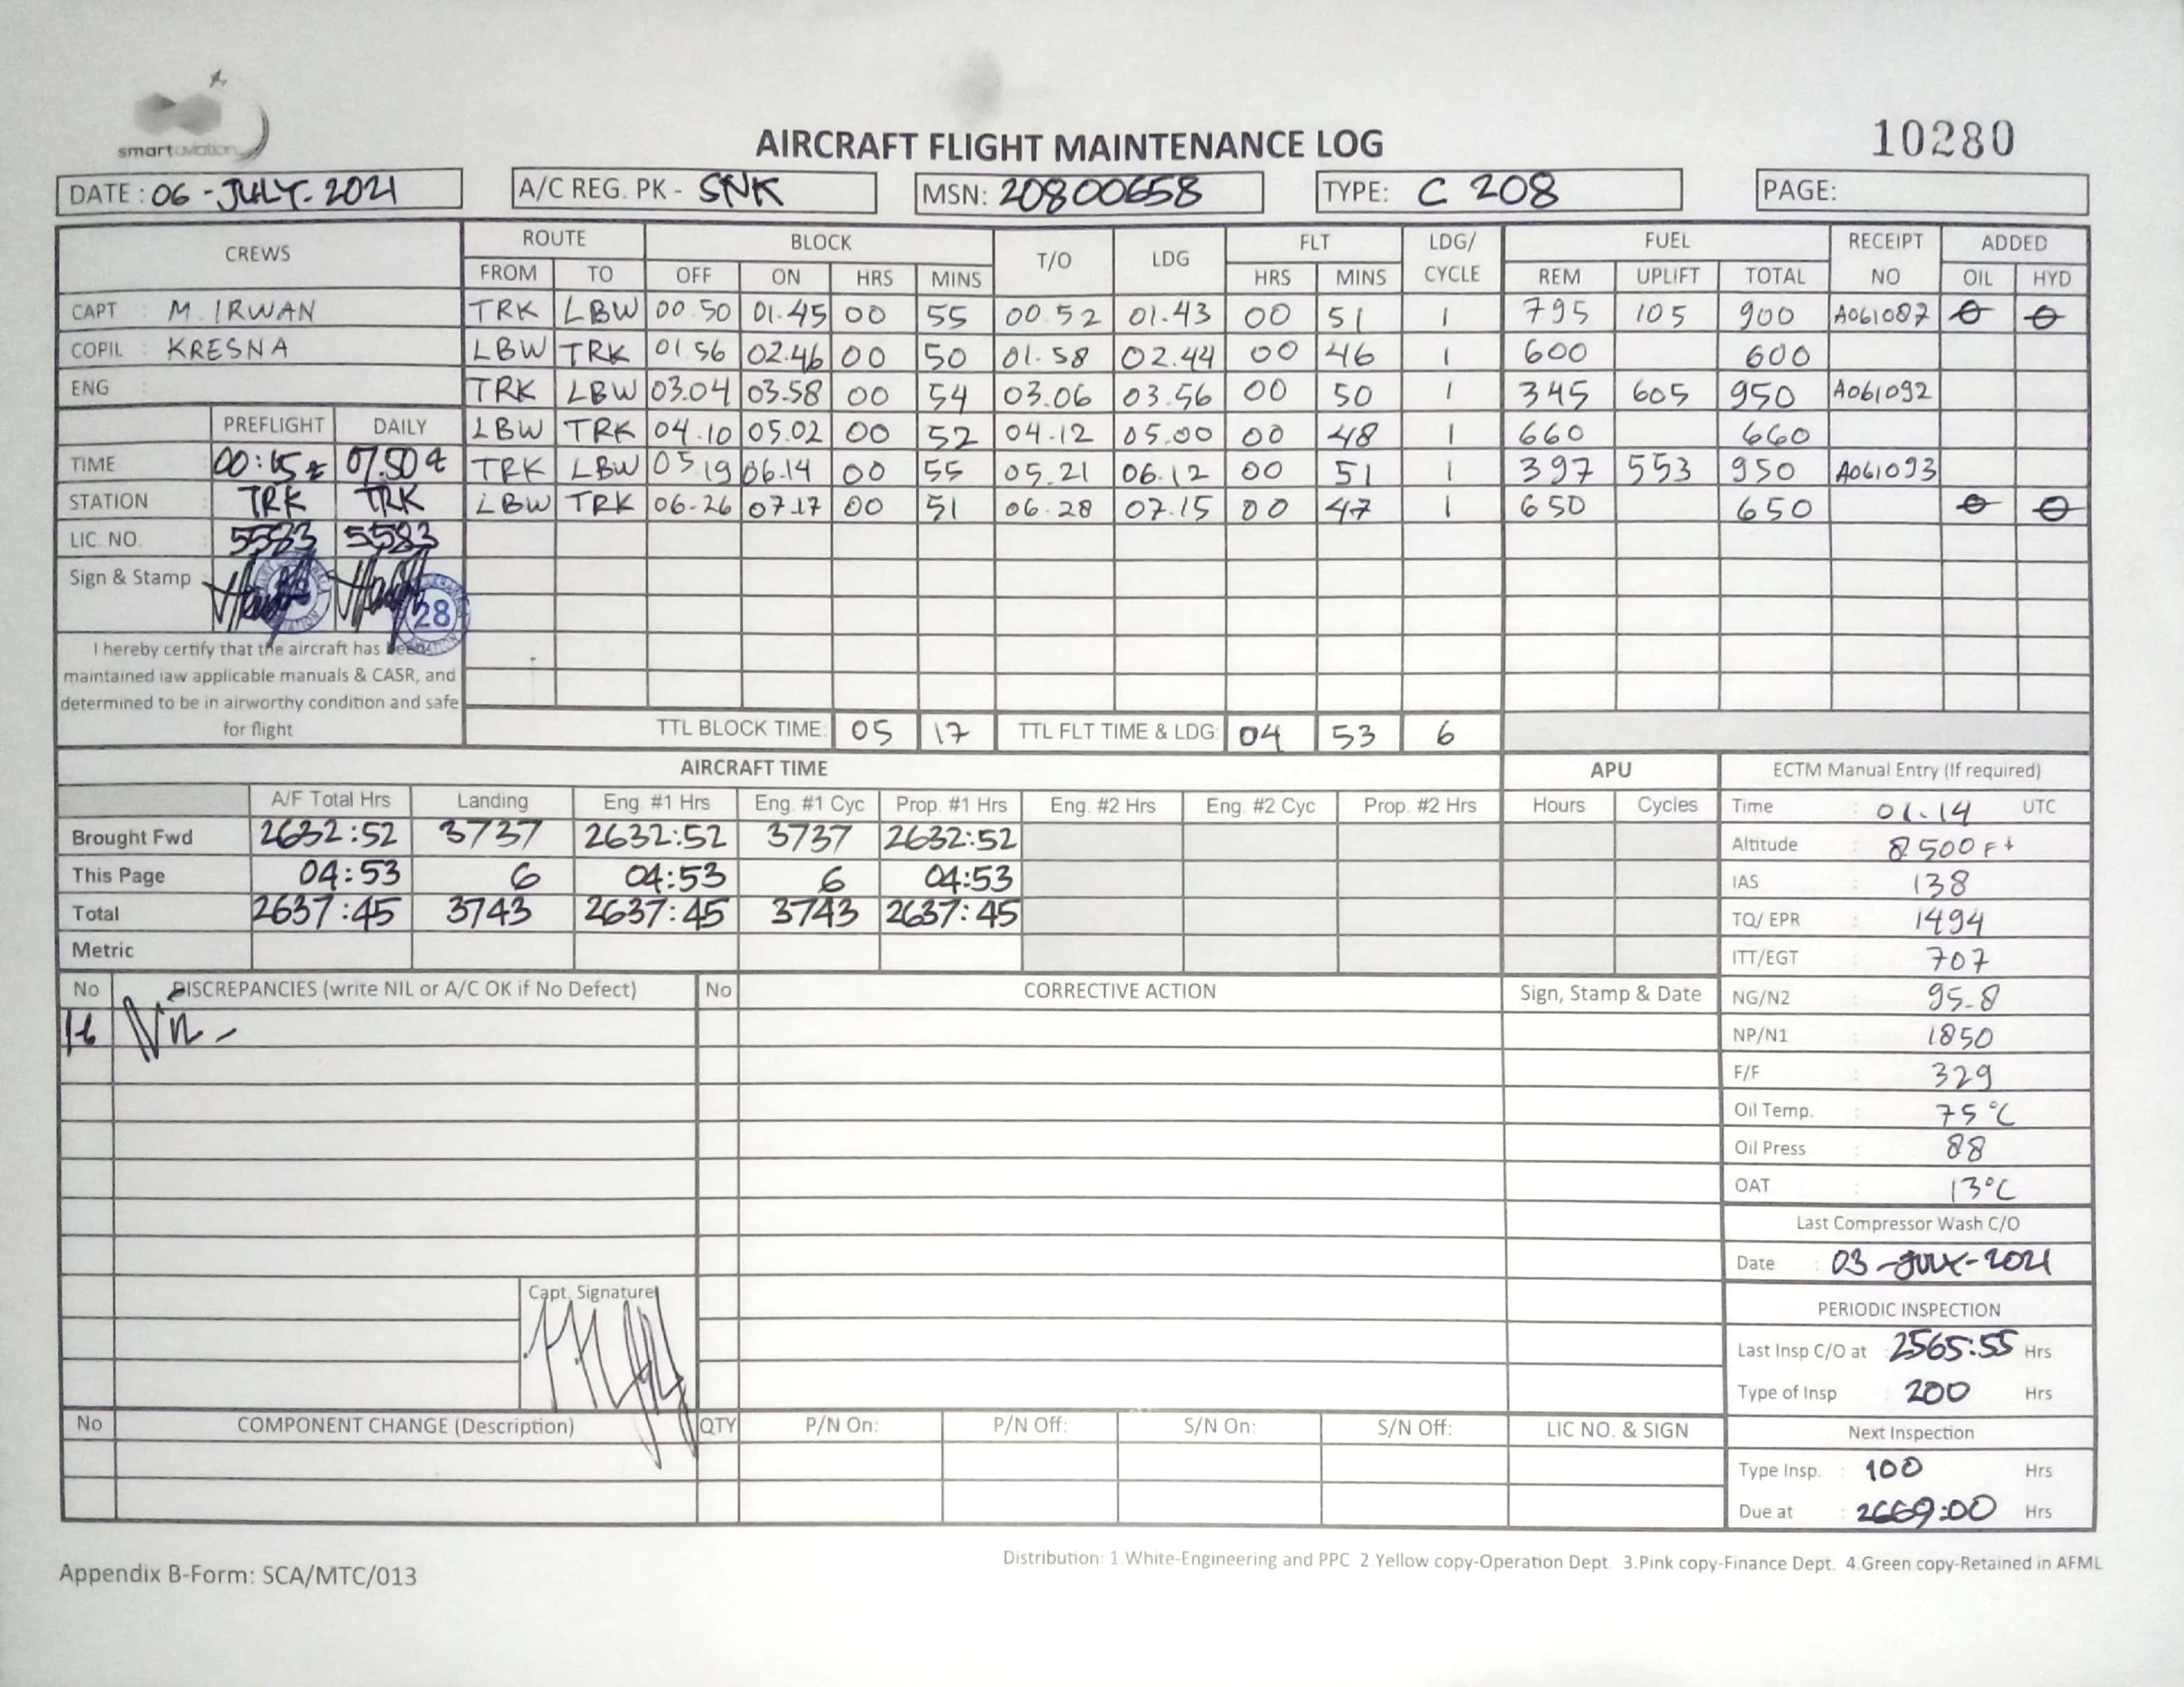 smart aviation
AIRCRAFT FLIGHT MAINTENANCE LOG
10280
DATE : 06 - JULY - 2021
A/C REG. PK - SNK
MSN: 20800658
TYPE: C 208
PAGE:
CREWS ROUTE BLOCK T/O LDG FLT LDG/ CYCLE FUEL RECEIPT NO ADDED
FROM TO OFF ON HRS MINS HRS MINS REM UPLIFT TOTAL OIL HYD
CAPT : M. IRWAN TRK LBW 00.50 01.45 00 55 00.52 01.43 00 51 1 795 105 900 A061087 0 0
COPIL : KRESNA LBW TRK 01.56 02.46 00 50 01.58 02.44 00 46 1 600 600
ENG : TRK LBW 03.04 03.58 00 54 03.06 03.56 00 50 1 345 605 950 A061092
PREFLIGHT DAILY LBW TRK 04.10 05.02 00 52 04.12 05.00 00 48 1 660 660
TIME 00:15 z 07.50 z TRK LBW 05.19 06.14 00 55 05.21 06.12 00 51 1 397 553 950 A061093
STATION TRK TRK LBW TRK 06.26 07.17 00 51 06.28 07.15 00 47 1 650 650 0 0
LIC. NO. 5583 5583
Sign & Stamp
28
I hereby certify that the aircraft has been
maintained iaw applicable manuals & CASR, and
determined to be in airworthy condition and safe
for flight
TTL BLOCK TIME: 05 17 TTL FLT TIME & LDG: 04 53 6
AIRCRAFT TIME APU
A/F Total Hrs Landing Eng. #1 Hrs Eng. #1 Cyc Prop. #1 Hrs Eng. #2 Hrs Eng. #2 Cyc Prop. #2 Hrs Hours Cycles
Brought Fwd 2632:52 3737 2632:52 3737 2632:52
This Page 04:53 6 04:53 6 04:53
Total 2637:45 3743 2637:45 3743 2637:45
Metric
ECTM Manual Entry (If required)
Time : 01.14 UTC
Altitude : 8500 Ft
IAS : 138
TQ/ EPR : 1494
ITT/EGT : 707
NG/N2 : 95.8
NP/N1 : 1850
F/F : 329
Oil Temp. : 75°C
Oil Press : 88
OAT : 13°C
Last Compressor Wash C/O
Date : 03-JULY-2021
PERIODIC INSPECTION
Last Insp C/O at : 2565:55 Hrs
Type of Insp : 200 Hrs
Next Inspection
Type Insp. : 100 Hrs
Due at : 2669:00 Hrs
No DISCREPANCIES (write NIL or A/C OK if No Defect) No CORRECTIVE ACTION Sign, Stamp & Date
Nil -
Capt. Signature
No COMPONENT CHANGE (Description) QTY P/N On: P/N Off: S/N On: S/N Off: LIC NO. & SIGN
Appendix B-Form: SCA/MTC/013
Distribution: 1.White-Engineering and PPC 2.Yellow copy-Operation Dept. 3.Pink copy-Finance Dept. 4.Green copy-Retained in AFML